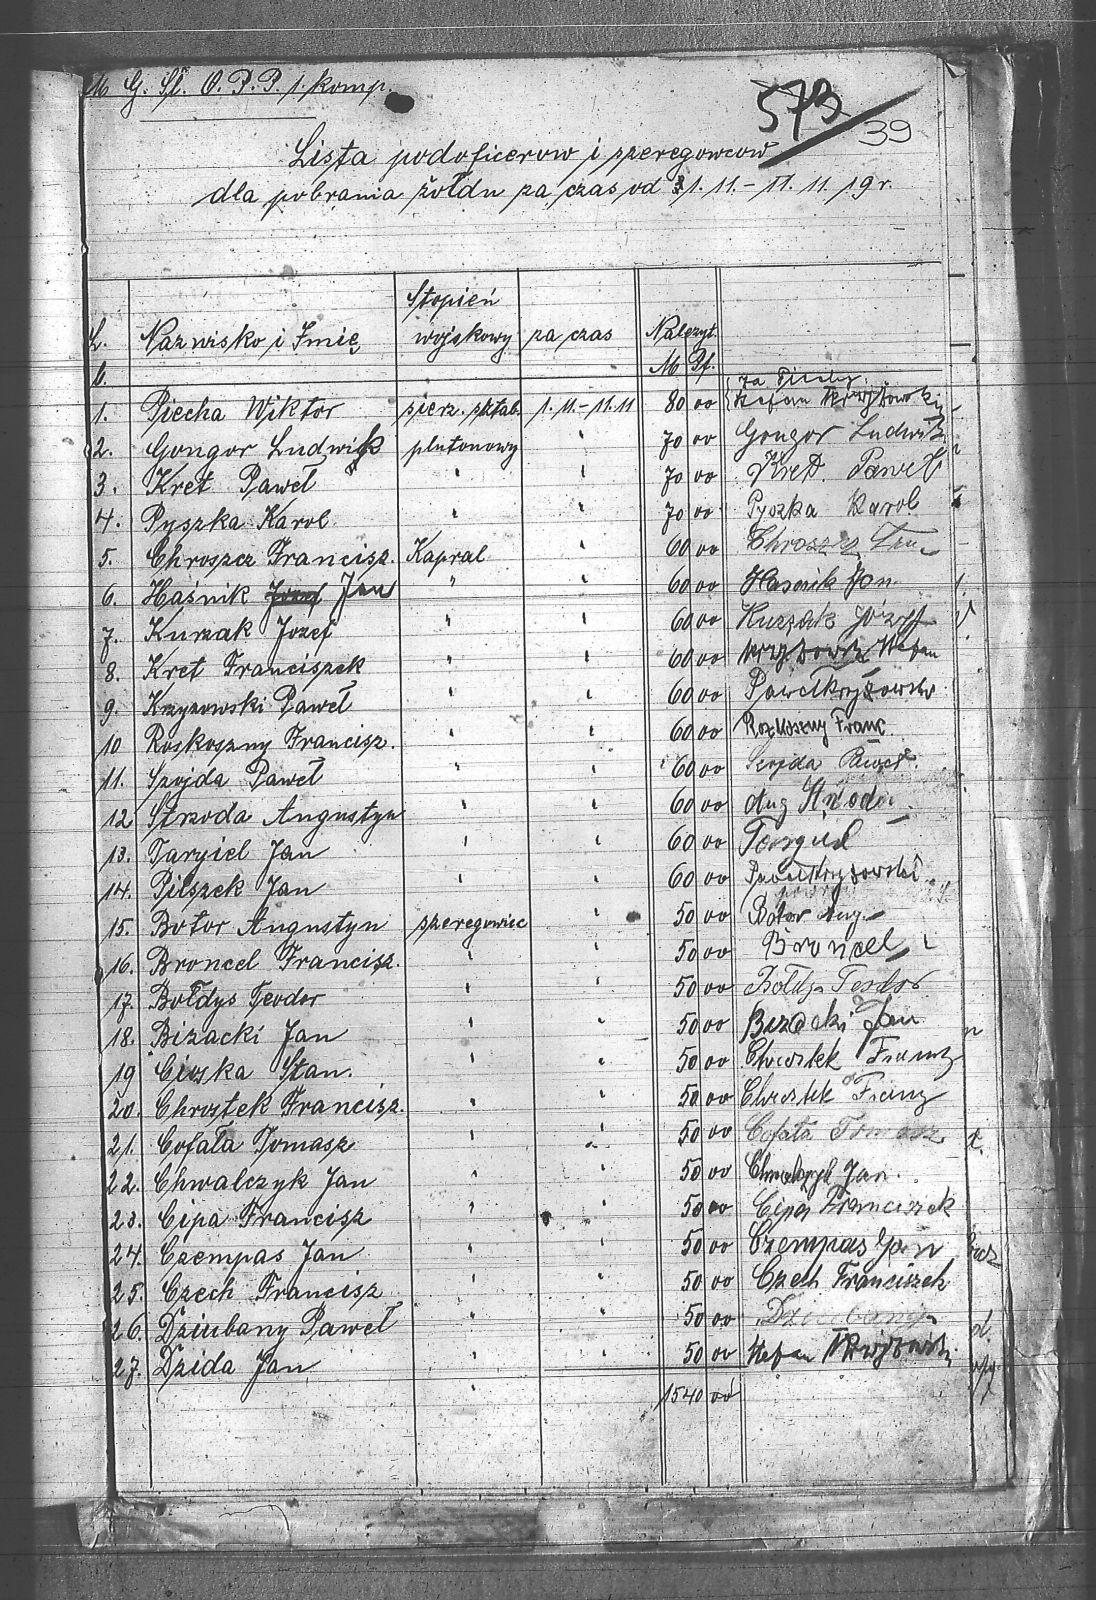 M G. Sl. O. P. P. 1. komp.
573/39
Lista podoficerow i szeregowcow
dla pobrania żołdu za czas od 1. 11. - 11. 11. 19 r.
L. b. Nazwisko i Imię Stopień wojskowy za czas Należyt. M Pf.
1. Piecha Wiktor sierz. sztab. 1. 11. - 11. 11 80 00 za Piechę Stefan
2. Gongor Ludwik plutonowy " 70 00 Gongor Ludwik
3. Kret Paweł " " 70 00 Kret Paweł
4. Pyszka Karol " " 70 00 Pyszka Karol
5. Chroszcz Francisz. Kapral " 60 00 Chroszcz Fra
6. Haśnik Józef Jan " " 60 00 Hasnik Jan
7. Kurzak Jozef " " 60 00 Kurzak Józef
8. Kret Franciszek " " 60 00 Stefan
9. Krzyzowski Paweł " " 60 00 Paweł Kryżowski
10 Roskoszny Francisz. " " 60 00 Rozkoszny Franc
11. Szojda Paweł " " 60 00 Szojda Paweł
12 Strzoda Augustyn " " 60 00 Aug Strzoda
13. Targiel Jan " " 60 00 Targiel
14. Pilszek Jan " " 60 00 Paweł Kryżowski
15. Botor Augustyn szeregowiec " 50 00 Botor Aug.
16. Broncel Francisz. " " 50 00 Broncel
17. Bołdys Teodor " " 50 00 Bołdys Teodor
18. Bizacki Jan " " 50 00 Bizacki Jan
19 Cioska Stan. " " 50 00 Chrostek Franz
20. Chrostek Francisz. " " 50 00 Chrostek Franz
21. Cofała Tomasz " " 50 00 Cofała Tomasz
22. Chwalczyk Jan " " 50 00 Chwalczyk Jan.
23. Cipa Francisz " " 50 00 Cipa Franciszek
24. Czempas Jan " " 50 00 Czempas Jan
25. Czech Francisz " " 50 00 Czech Franciszek
26. Dziubany Paweł " " 50 00 Dziubany
27. Dzida Jan " " 50 00 Stefan
1540 00